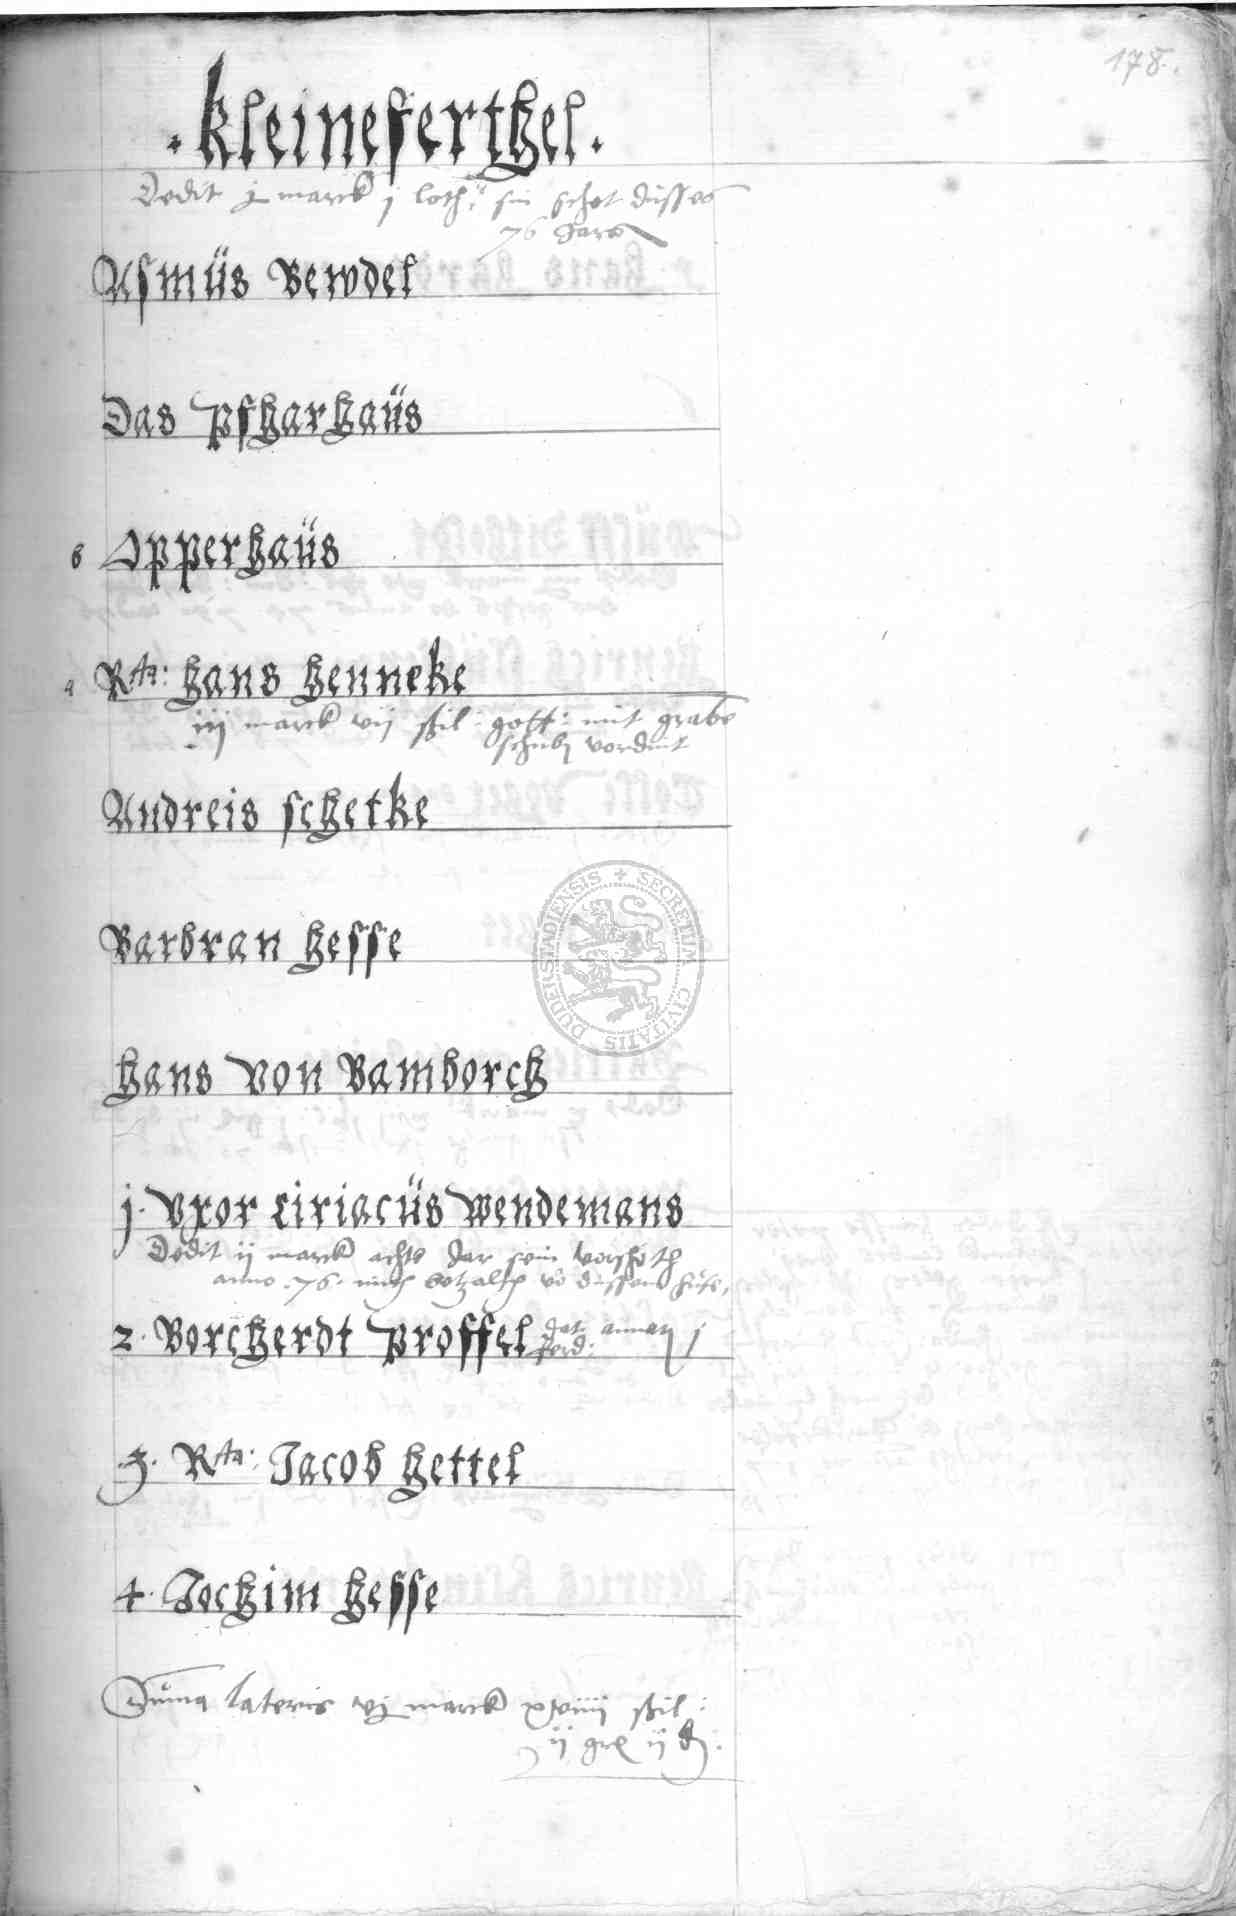 178.
. kleineferthel .
Dedit j marck j loth: sin schot düsses
76 Jares
Asmüs Bewdel
Das Pfharhaüs
6 Opperhaüs
Rta: Hans Henneke
iij marck vij ßil: gott: mit grabe
vordint
Andreis Schetke
Barbran Hesse
Hans Von Bamborch
j. Vxor Ciriacüs Wendemans
Dedit ij marck achte Jar sein vorschoth
anno .76. betzalth vo dussem huse,
2. Borcherdt Proffel dat
ferd:
3. Rta: Jacob Hettel
4. Jochim Hesse
Suma lateris vj marck xviiij ßil:
ij gr ij d:
SECRETUM CIVITATIS DUDERSTADIENSIS